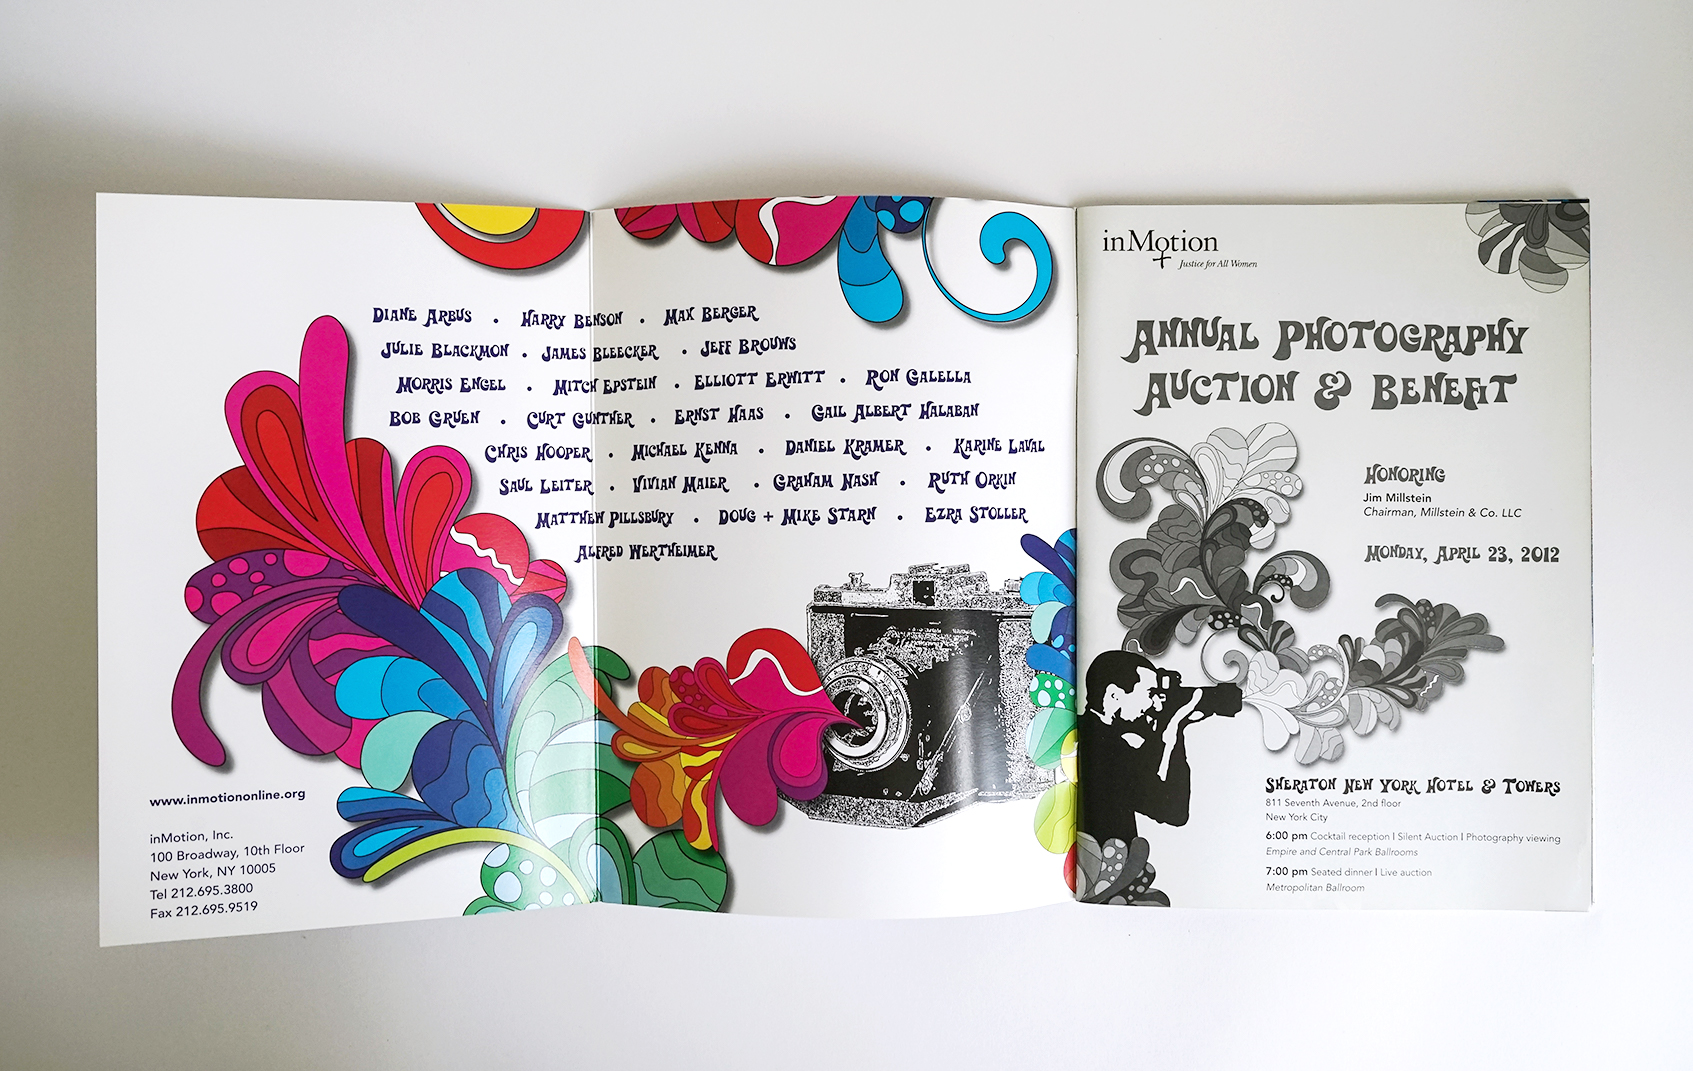 Diane Arbus . Harry Benson . Max Berger
Julie Blackmon . James Bleecker . Jeff Brouws
Morris Engel . Mitch Epstein . Elliott Erwitt . Ron Galella
Bob Gruen . Curt Gunther . Ernst Haas . Gail Albert Halaban
Chris Hooper . Michael Kenna . Daniel Kramer . Karine Laval
Saul Leiter . Vivian Maier . Graham Nash . Ruth Orkin
Matthew Pillsbury . Doug + Mike Starn . Ezra Stoller
Alfred Wertheimer
www.inmotiononline.org
inMotion, Inc.
100 Broadway, 10th Floor
New York, NY 10005
Tel 212.695.3800
Fax 212.695.9519
inMotion
Justice for All Women
Annual Photography
Auction & Benefit
Honoring
Jim Millstein
Chairman, Millstein & Co. LLC
Monday, April 23, 2012
Sheraton New York Hotel & Towers
811 Seventh Avenue, 2nd floor
New York City
6:00 pm Cocktail reception | Silent Auction | Photography viewing
Empire and Central Park Ballrooms
7:00 pm Seated dinner | Live auction
Metropolitan Ballroom